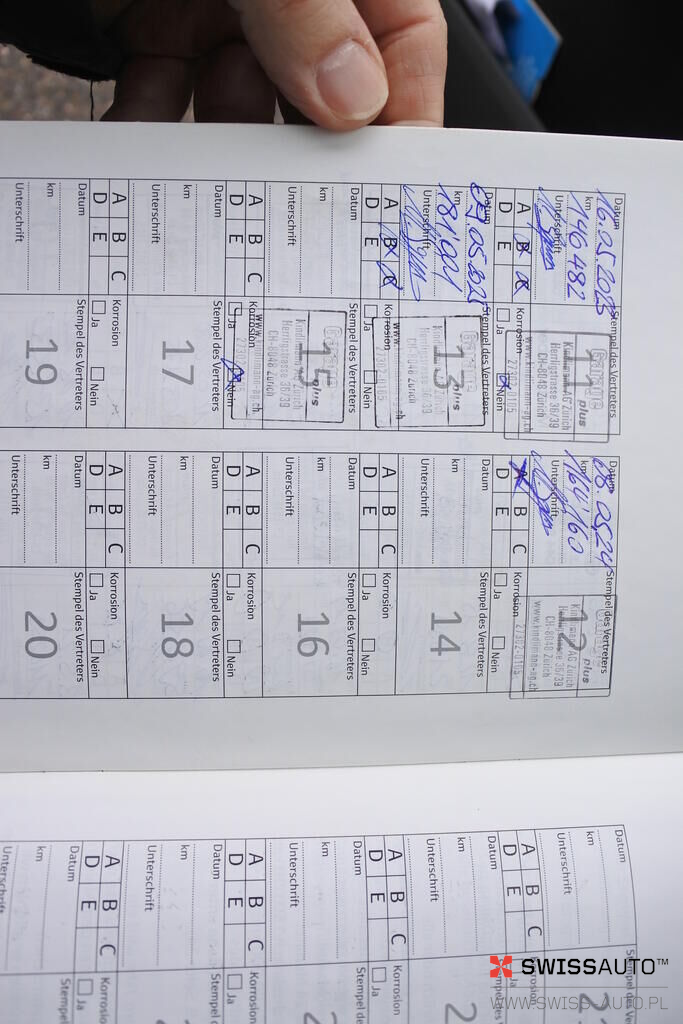 Datum 16.05.2023
km 146 482
Unterschrift
A B C
D E
Stempel des Vertreters
11
Garage plus
Kindlimann AG Zürich
Herrligstrasse 36/39
CH-8048 Zürich
27392-0105
www.kindlimann-ag.ch
Korrosion
Ja Nein
Datum 08.05.24
km 164'160
Unterschrift
A B C
D E
Stempel des Vertreters
12
Garage plus
Kindlimann AG Zürich
Herrligstrasse 36/39
CH-8048 Zürich
27392-0105
www.kindlimann-ag.ch
Korrosion
Ja
Datum 05.2025
km
Unterschrift
A B C
D E
Stempel des Vertreters
13
plus
Herrligstrasse 36/39
CH-8048 Zürich
27392-0105
Korrosion
Ja Nein
Datum
km
Unterschrift
A B C
D E
Stempel des Vertreters
14
Korrosion
Ja Nein
Datum
km
Unterschrift
A B C
D E
Stempel des Vertreters
plus
Kindlimann AG Zürich
Herrligstrasse 36/39
CH-8048 Zürich
www.kindlimann-ag.ch
Korrosion
Ja Nein
Datum
km
Unterschrift
A B C
D E
Stempel des Vertreters
16
Korrosion
Ja Nein
Datum
km
Unterschrift
A B C
D E
Stempel des Vertreters
17
Korrosion
Ja Nein
Datum
km
Unterschrift
A B C
D E
Stempel des Vertreters
18
Korrosion
Ja Nein
Datum
km
Unterschrift
Stempel des Vertreters
19
Datum
km
Unterschrift
Stempel des Vertreters
20
Datum
km
Unterschrift
A B C
D E
Korrosion
Ja
Datum
km
Unterschrift
A B C
D E
Stempel des
Korrosion
Ja
Datum
km
Unterschrift
A B C
D E
Stempel des
Korrosion
Ja
Datum
km
Unterschrift
Stempel
SWISSAUTO™
WWW.SWISS-AUTO.PL